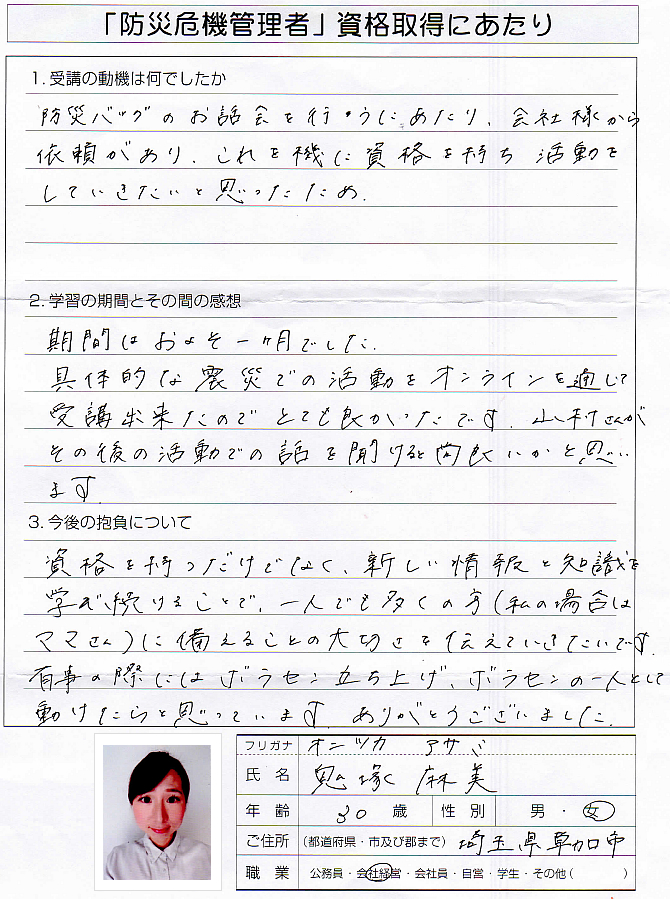 「防災危機管理者」資格取得にあたり
1. 受講の動機は何でしたか
防災バッグのお話会を行うにあたり、会社様から
依頼があり、これを機に資格を持ち活動を
していきたいと思ったため。
2. 学習の期間とその間の感想
期間はおよそ一ヶ月でした。
具体的な震災での活動をオンラインを通じて
受講出来たのでとても良かったです。山村さんが
その後の活動での話を聞けると尚良いかと思い
ます。
3. 今後の抱負について
資格を持つだけでなく、新しい情報と知識を
学び続けることで、一人でも多くの方(私の場合は
ママさん)に備えることの大切さを伝えていきたいです。
有事の際にはボラセン立ち上げ、ボラセンの一人として
動けたらと思っています。ありがとうございました。
フリガナ オニツカ アサミ
氏名 鬼塚 麻美
年齢 30 歳 性別 男・女
ご住所 (都道府県・市及び郡まで) 埼玉県草加市
職業 公務員・会社経営・会社員・自営・学生・その他( )